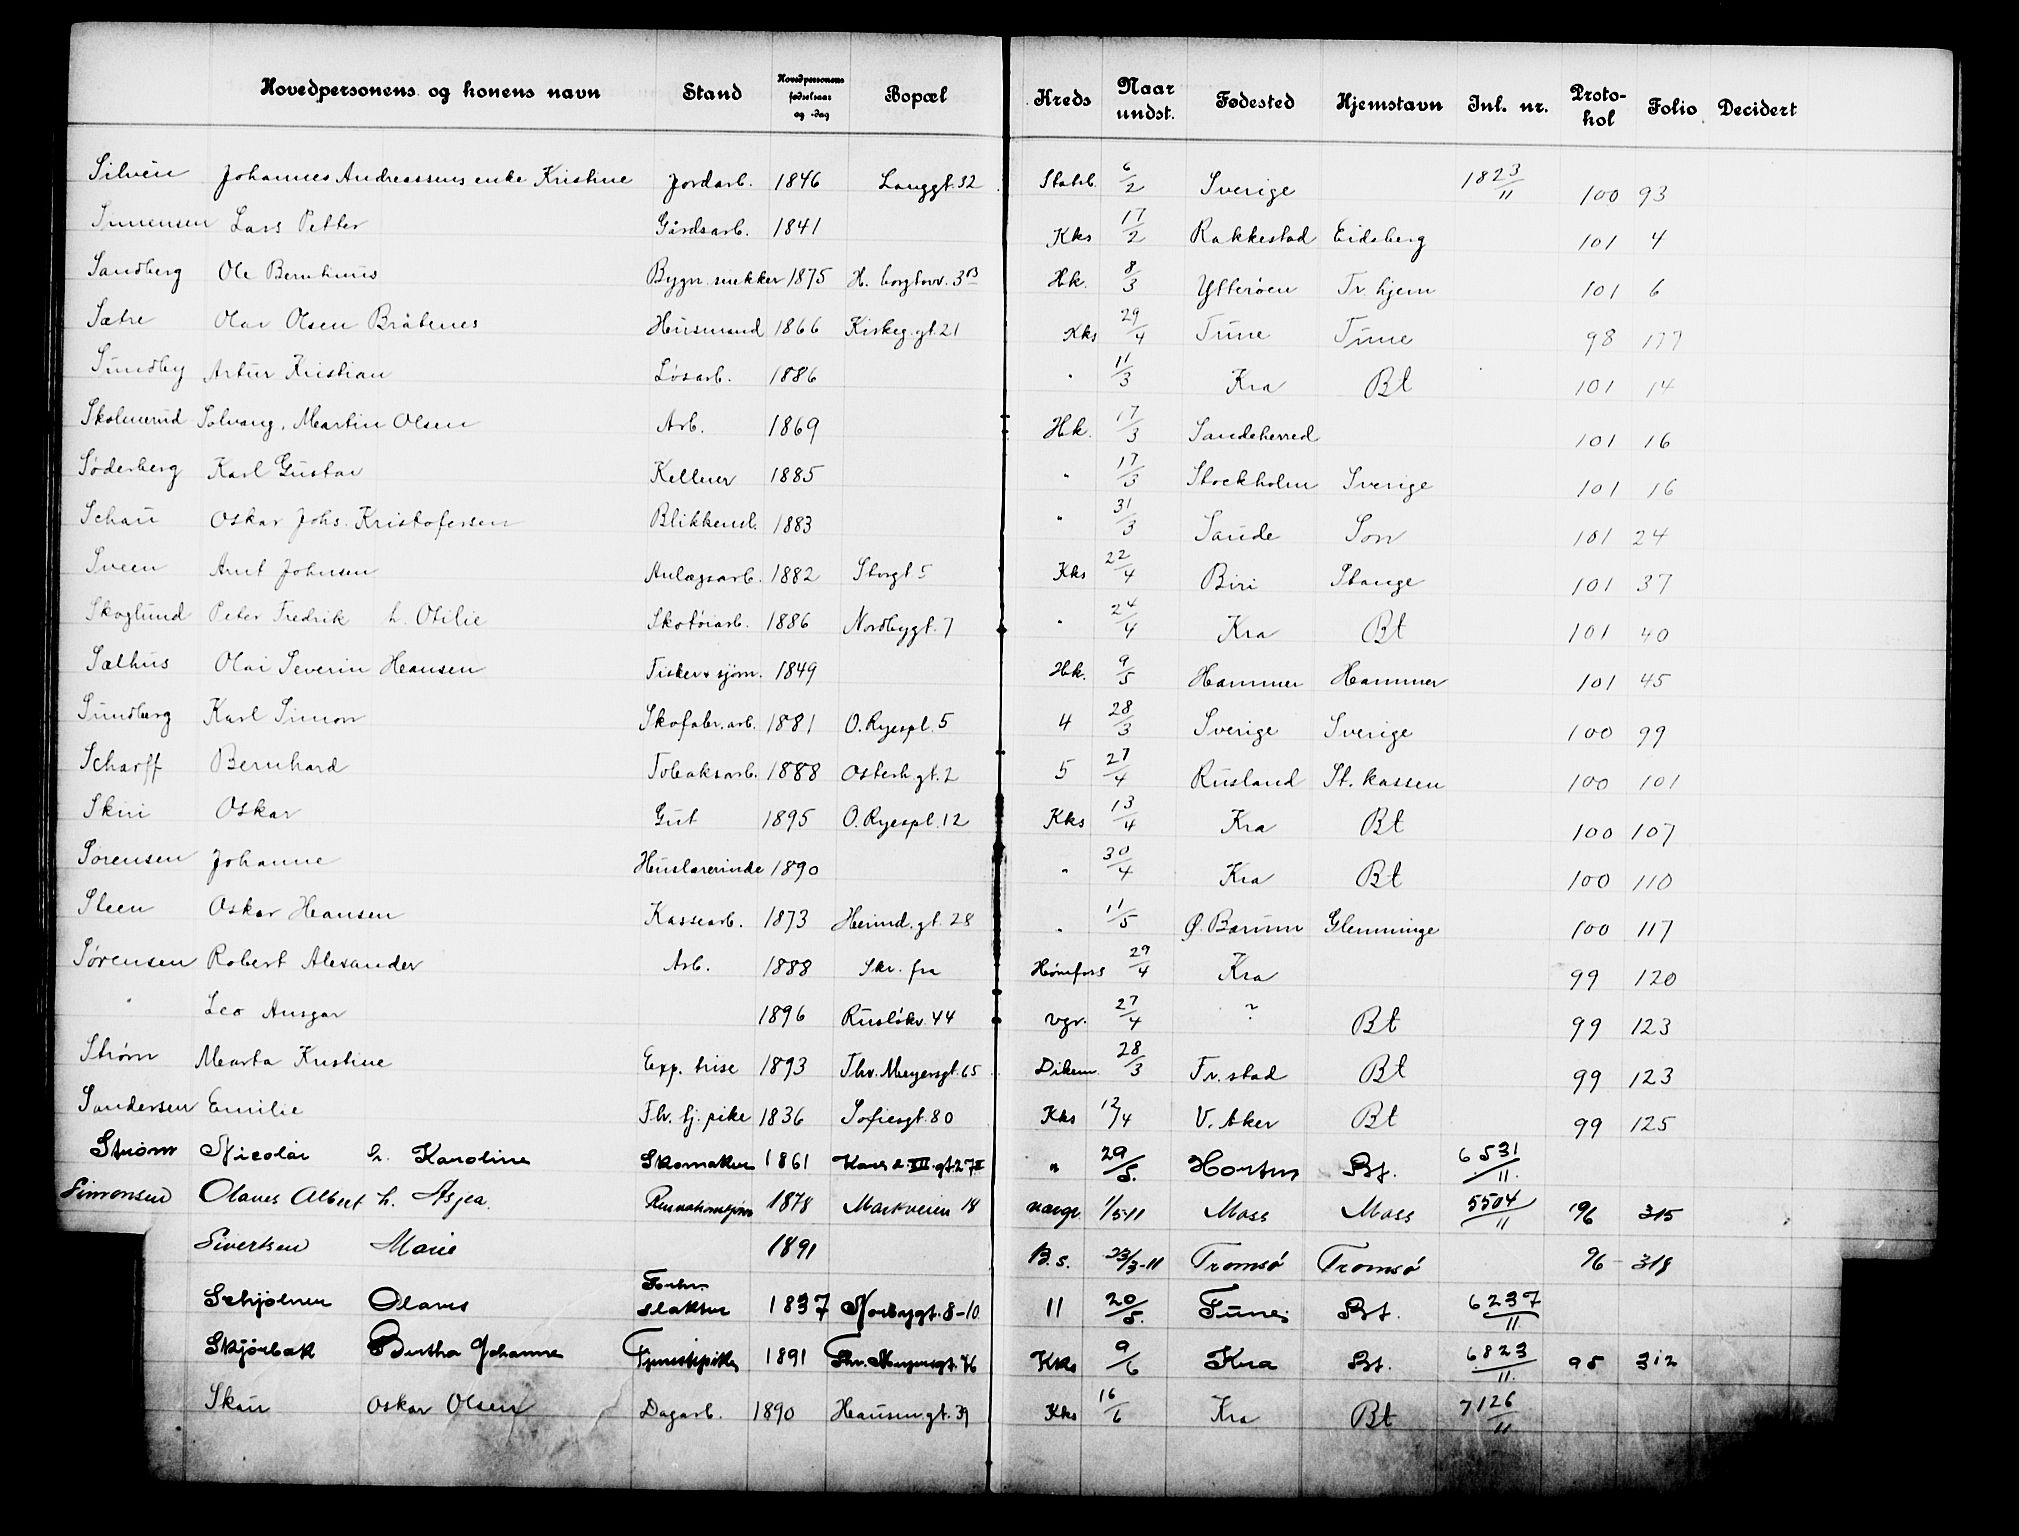 Hovedpersonens og konens navn Stand Hovedpersonens fødselsaar og -dag Bopæl Kreds Naar undst. Fødested Hjemstavn Inl. nr. Protokol Folio Decidert
Silvén Johannes Andreassens enke Kristine Jordarb. 1846 Langgt. 32 Stabsb. 6/2 Sverige 1823/11 100 93
Simensen Lars Petter Gårdsarb. 1841 Kks 17/2 Rakkestad Eidsberg 101 4
Sandberg Ole Bernhinus Bygn. snekker 1875 H. borgtorv. 3 B Hk. 8/3 Ytterøen Tr. hjem 101 6
Sætre Olai Olsen Bråtenes Husmand 1866 Kirkeg. gt. 21 Kks 29/4 Tune Tune 98 177
Sundby Artur Kristian Løsarb. 1886 " 11/3 Kra Bt 101 14
Skolmerud Solvang, Martin Olsen Arb. 1869 Hk. 17/3 Sandeherred 101 16
Søderberg Karl Gustav Kellner 1885 " 17/3 Stockholm Sverige 101 16
Schau Oskar Johs. Kristofersen Blikkensl. 1883 " 31/3 Saude Son 101 24
Sveen Arnt Johnsen Anlægsarb. 1882 Storgt 5 Kks 22/4 Biri Stange 101 37
Skoglund Peter Fredrik h. Otilie Skotøiarb. 1886 Nordbygt. 7 " 24/4 Kra Bt 101 40
Sælhus Olai Severin Hansen Fisker & sjøm. 1849 Hk. 9/5 Hammer Hammer 101 45
Sundberg Karl Simon Skofabr. arb. 1881 O. Ryespl. 5 4 28/3 Sverige Sverige 100 99
Scharff Bernhard Tobaksarb. 1888 Osterh. gt. 2 5 27/4 Rusland St. kassen 100 101
Skiri Oskar Gut 1895 O. Ryespl. 12 Kks 13/4 Kra Bt 100 107
Sørensen Johanne Huslærerinde 1890 " 30/4 Kra Bt 100 110
Steen Oskar Hansen Kassearb. 1873 Heimd. gt. 28 " 11/5 Ø. Bærum Glemminge 100 117
Sørensen Robert Alexander Arb. 1888 Skr. fra Hønefoss 29/4 Kra 99 120
" Leo Ansgar 1896 Rusløkv. 44 vgr. 27/4 ? Bt 99 123
Strøm Marta Kristine Exp. trise 1893 Thv. Meyersgt. 65 Dikem. 28/3 Fr. stad Bt 99 123
Sandersen Emilie Fhv. tj. pike 1836 Sofiesgt. 80 Kks 12/4 V. Aker Bt 99 125
Strøm Nicolai h. Karoline Skomaker 1861 Karl d. XII. gt. 27 II " 29/5. Horten Bt. 6531/11.
Simonsen Olaves Albert h. Asjea 1878 Markveien 18 vævgr. 1/5-11 Moss Moss 5504/11 96 315
Sivertsen Marie 1891 B. s. 23/3-11 Tromsø Tromsø 96 318
Schjølner Olaves Forhv. slakter 1837 Nordbygt. 8-10. 11 20/5. Tune Bt. 6237/11.
Skjørbæk Bertha Johanne Tjenestepike 1891 Thv. Meyersgt. 76 Kks 9/6 Kra Bt. 6823/11. 95 312
Skau Oskar Olsen Dagarb. 1890 Hausm. gt. 39 Kks 16/6 Kra Bt 7126/11